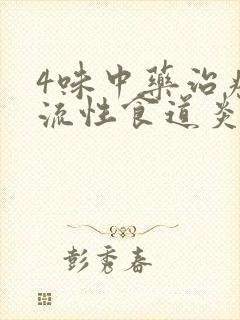 4味中藥治
流性食道炎
彭秀春